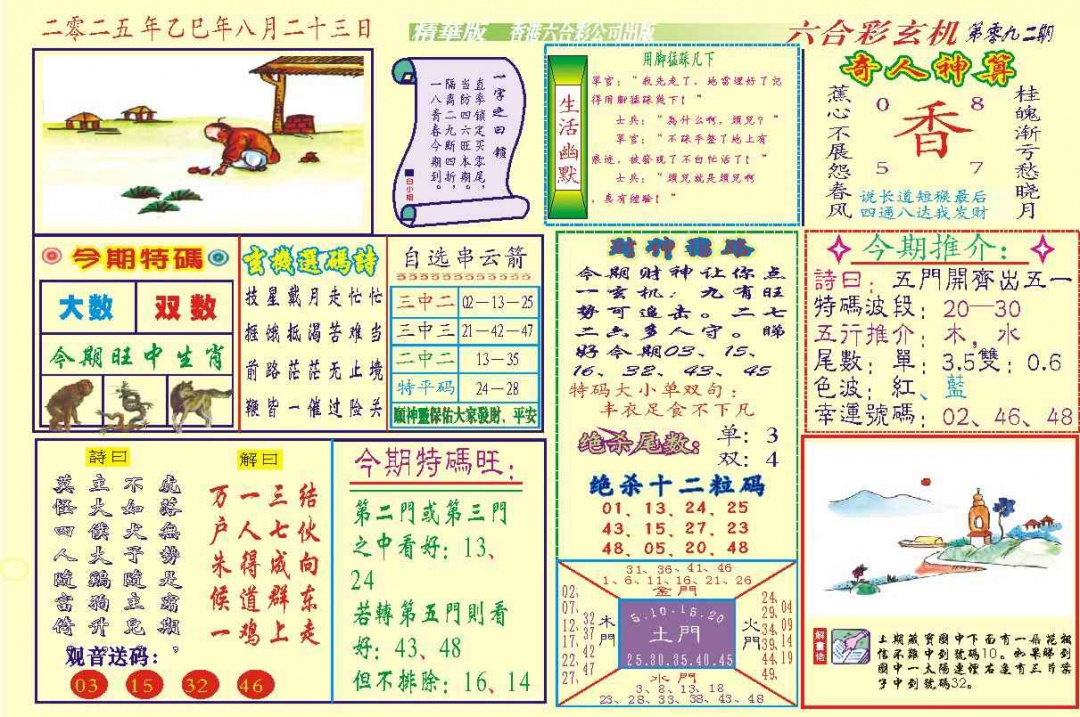 二零二五年乙巳年八月二十三日
精華版 香港六合彩公司出版
六合彩玄机 第零九二期
一字之曰 鎖
直季锁定买零尾,
当防四六旺本期。
隔离二九断四折,
一八青春今期到。
白小姐
生活幽默
用脚猛踩几下
軍官:“我先走了,地雷埋好了记
得用脚猛踩幾下!”
士兵:“為什么啊,頭兒?”
軍官:“不踩平整了地上有
痕迹,被發現了不白忙活了!”
士兵:“頭兒就是頭兒啊
,真有經驗!”
奇人神算
蕉心不展怨春风
桂魄渐亏愁晓月
0 8
香
5 7
说长道短猴最后
四通八达我发财
今期特碼
大数 双数
今期旺中生肖
玄機選碼詩
技星戴月走忙忙
捱饿抵渴苦难当
前路茫茫无止境
鞭皆一催过险关
自选串云箭
三中二 02—13—25
三中三 21—42—47
二中二 13—35
特平码 24—28
順神靈保佑大家發財、平安
今期财神让你点
一玄机:九有旺
势可追击。二七
二六多人守。睇
好今期03、15、
16、32、43、45
特码大小单双句:
丰衣足食不下凡
绝杀尾数: 单:3
双:4
绝杀十二粒码
01、13、24、25
43、15、27、23
48、05、20、48
今期推介:
詩曰:五門開齊出五一
特碼波段:20—30
五行推介:木,水
尾數:單:3.5雙:0.6
色波:紅、藍
幸運號碼:02、46、48
詩曰
虎落無勢是霜期,
不如犬予隨主兒。
主大僕大鷄狗升,
莫怪四人隨富倚。
解曰
结伙向东走
三七成群上
一人得道鸡
万户朱候一
观音送码:
03 15 32 46
今期特碼旺:
第二門或第三門
之中看好:13、
24
若轉第五門則看
好:43、48
但不排除:16、14
31、36、41、46
1、6、11、16、21、26
金門
02、07、12、17、22、27、
32、37、42、47
木門
5.10.15.20
土門
25.30.35.40.45
火門
24、29、34、39、44、49、
04、09、14、19
水門
3、8、13、18
23、28、33、38、43、48
解畫偆
上期藏寶圖中下面有一朵花相
信不難中到號碼10。如果睇到
圖中一太陽連煙右邊有三片葉
子中到號碼32。